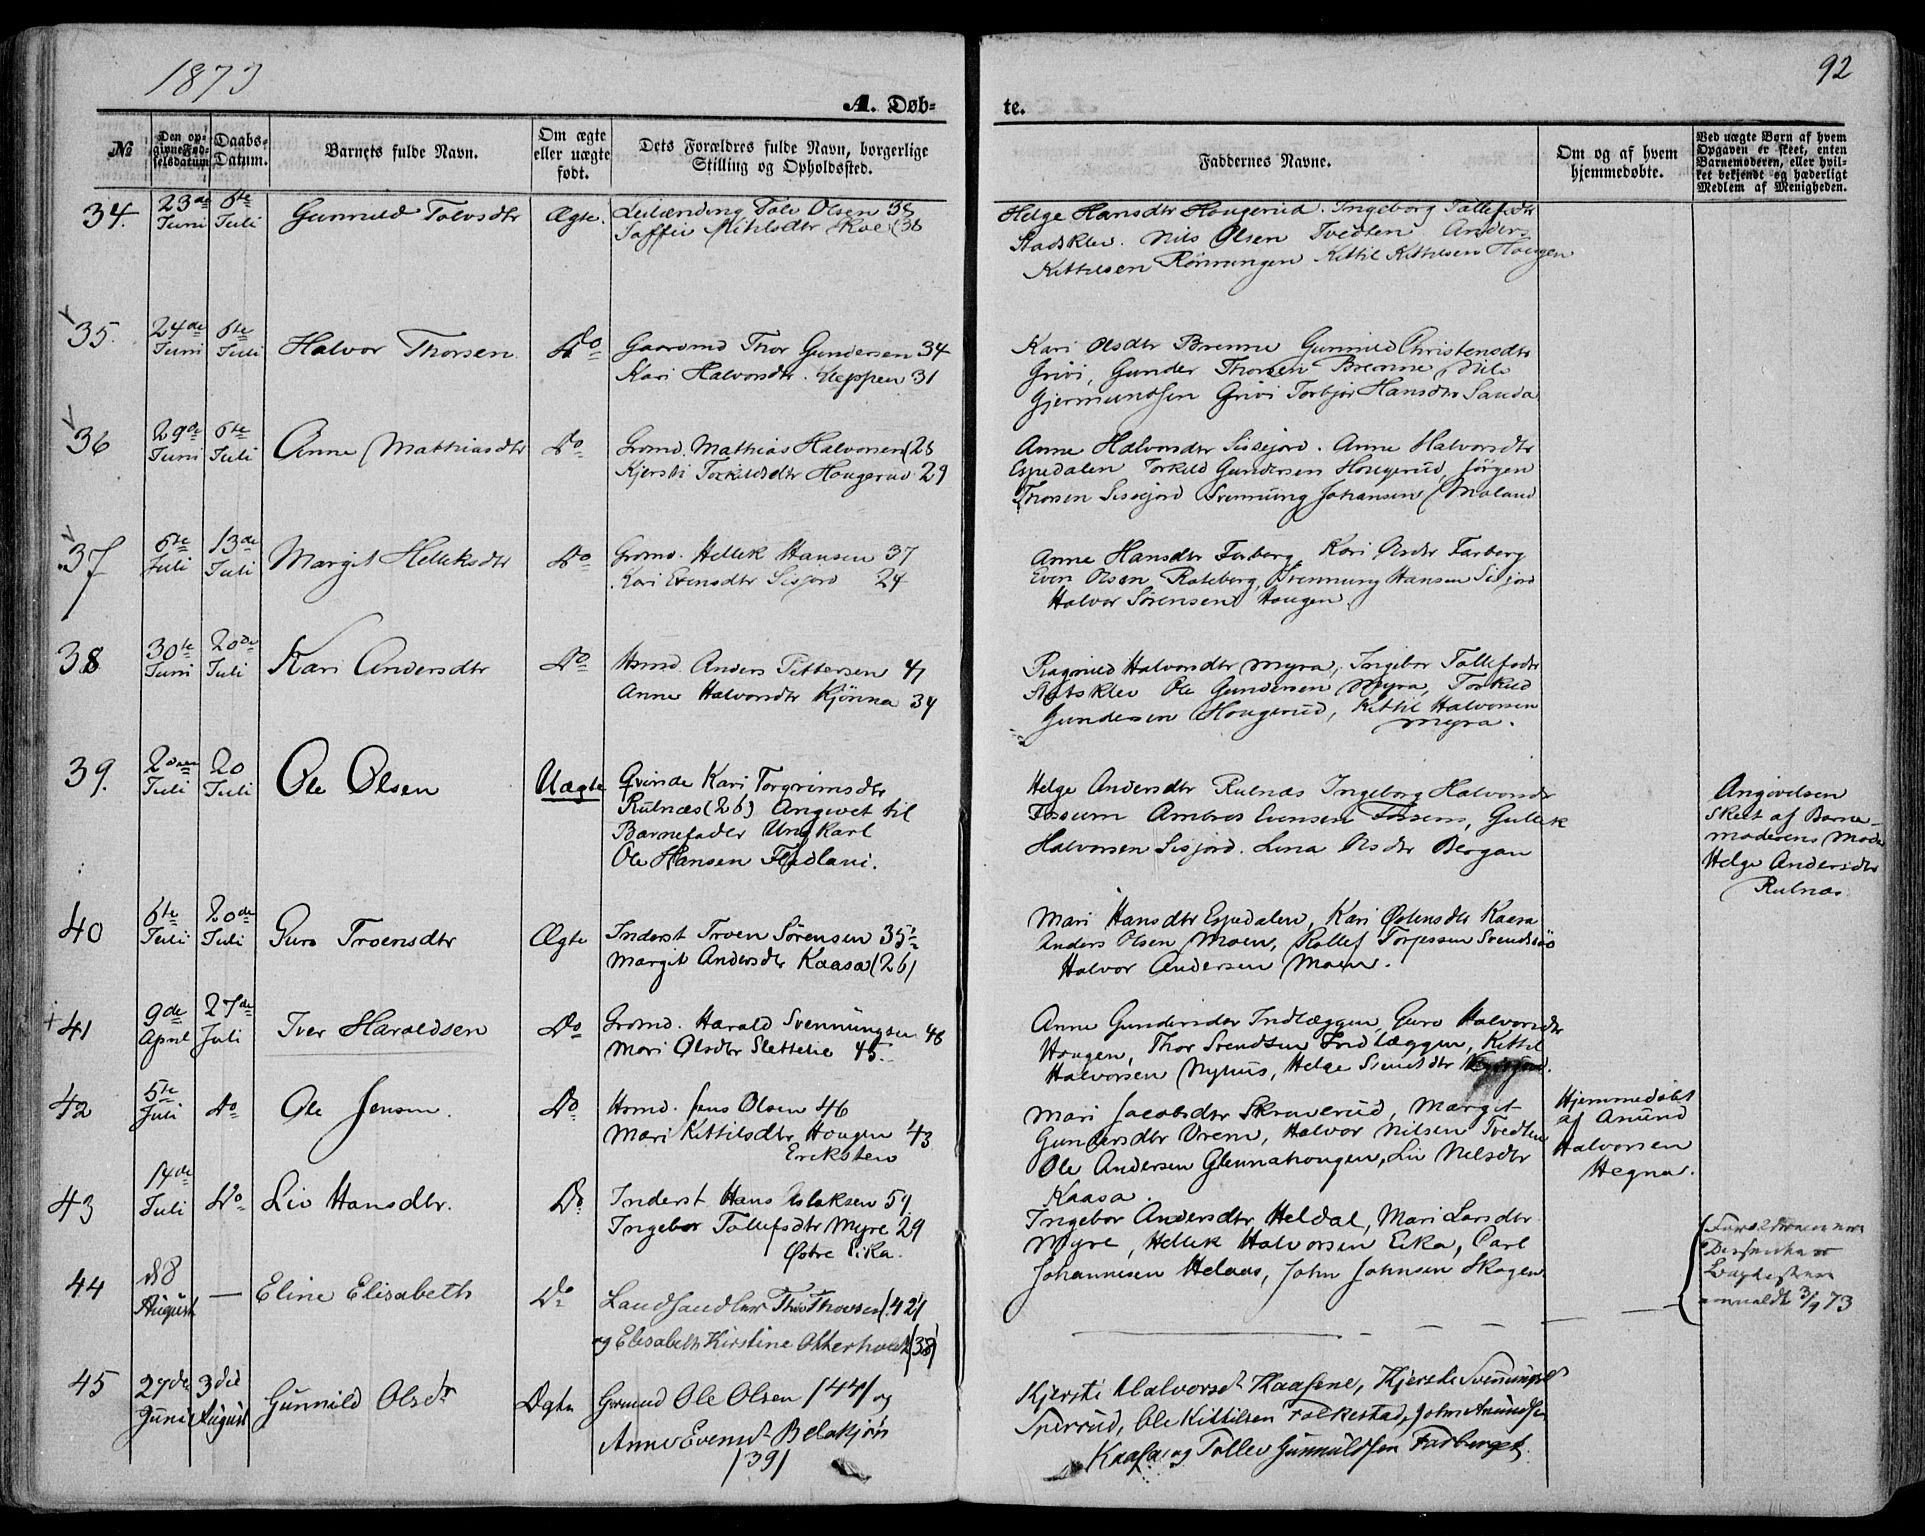 1873
92
A. Døb-
te.
№
Den op-
givne Fød-
selsdatum
Daabs-
Datum.
Barnets fulde Navn.
Om ægte
eller uægte
født.
Dets Forældres fulde Navn, borgerlige
Stilling og Opholdssted.
Faddernes Navne.
Om og af hvem
hjemmedøbte.
Ved uægte Børn af hvem
Opgaven er skeet, enten
Barnemoderen, eller hvil-
ket bekjendt og hæderligt
Medlem af Menigheden.
34.
23de
Juni
6te
Juli
Gunnild Tolvsdtr
Ægte.
Leilending Tolv Olsen 38
Kittilsdtr (36
Helge Hansdtr Hougerud. Ingeborg Tollefsdtr
Stadsklev. Nils Olsen Tvedten Anders
Kittilsen Rönnungen Kittil Kittilsen Hougen
35.
24de
Juni
6te
Juli
Halvor Thorsen
Do
Gaardmd Thor Gundersen 34
Kari Halvorsdtr. Kleppen 31
Kari Olsdtr Brenne Gunnild Christensdtr
Grivi, Gunder Thorsen Brenne Nils
Gjermundsen Grivi Torbjør Hansdtr Sanda
36
29de
Juni
6te
Juli
Anne Mathiasdtr
Do
Grmd. Mathias Halvorsen (28
Kjersti Torkildsdtr Hougerud 29
Anne Halvorsdtr Sissejord. Anne Halvorsdtr
Espedalen Torkild Gundersen Hougerud, Jörgen
Thorsen Sissejord Svennung Johansen Moland
37
6te
Juli
13de
Juli
Margit Helleksdtr
Do
Grmd. Hellek Hansen 37
Kari Evensdtr Sisjord 24
Anne Hansdtr Farberg, Kari Olsdtr Farberg
Even Olsen Rateberg, Svennung Hansen Sisjord
Halvor Sörensen Hougen.
38
30te
Juni
20de
Juli
Kari Andersdtr
Do
Hsmd Anders Pettersen 41
Anne Halvorsdtr Kjönna 34
Ragnild Halvorsdtr Myra, Ingebor Tollefsdtr
Statsklev Ole Gundersen Myra, Torkild
Gundersen Hougerud, Kittil Halvorsen
Myra.
39.
2den
Juli
20
Juli
Ole Olsen
Uægte
Qvinde Kari Torgrimsdtr
Rulnæs (26) Angivet til
Barnefader Ungkarl
Ole Hansen Fladlani.
Helge Andersdtr Rulnæs Ingeborg Halvorsdtr
Fossum Ambros Evensen Fossum, Gullek
Halvorsen Sisjord. Lina Olsdtr Bergan
Angivelsen
Skeet af Barne-
moderens Moder
Helge Andersdtr
Rulnæs
40
6te
Juli
20de
Juli
Guro Troensdtr
Ægte
Inderst Troen Sörensen 35
Margit Andersdtr Kaasa (26)
Mari Hansdtr Espedalen, Kari Østensdtr Kaasa
Anders Olsen Moen, Rollef Torjessen Svendsöö
Halvor Andersen Moen.
41
9de
April
27de
Juli
Iver Haroldsen
Do
Grmd. Harald Svennungsen 48
Mari Olsdtr Slettelie 45.
Anne Gundersdtr Indlæggen, Guro Halvorsdtr
Hougen, Thor Svendsen Indlæggen, Kittil
Halvorsen Nyhus, Helge
42
5te
Juli
Do
Ole Jensen.
Do
Hsmd. Jens Olsen 46
Mari Kittilsdtr Hougen 43
Eriksten
Mari Jacobsdtr Skraverud, Margit
Gundersdtr Vrem, Halvor Nilsen Tvedten
Ole Andersen Glennahougen, Liv Nilsdtr
Kaasa.
Hjemmedøbt
af Anund
Halvorsen
Hegna.
43
14de
Juli
Do
Liv Hansdtr.
Do
Inderst Hans Aslaksen 59
Ingebor Tollefsdtr Myre 29
Østre Eika.
Ingebor Andersdtr Heldal, Mari Larsdtr
Myre, Hellek Halvorsen Eika, Carl
Johannesen Helaas, John Johnsen Skogen
44
d 8
August
—
Eline Elisabeth
Do
Landhandler Thor Thorsen (42)
og Elisabeth Kirstine Otterholdt (38)
anmeldt 3/9 73
45
27de
Juni
3die
August
Gunnild Olsdtr
Ægte
Grmnd Ole Olsen /44/ og
Anne Evensdt
/39/
Kjersti Halvorsdt Kaasene, Kjersti
Sperrud, Ole Kittilsen Folkestad, John Anundsen
Kaasa og Tollev Gunnuldsen Farberget.